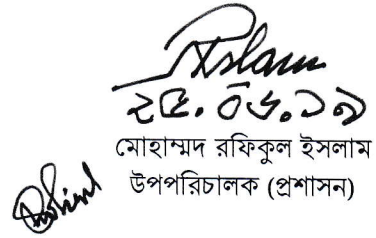 ২৫.০৬.১৯
মোহাম্মদ রফিকুল ইসলাম
উপপরিচালক (প্রশাসন)